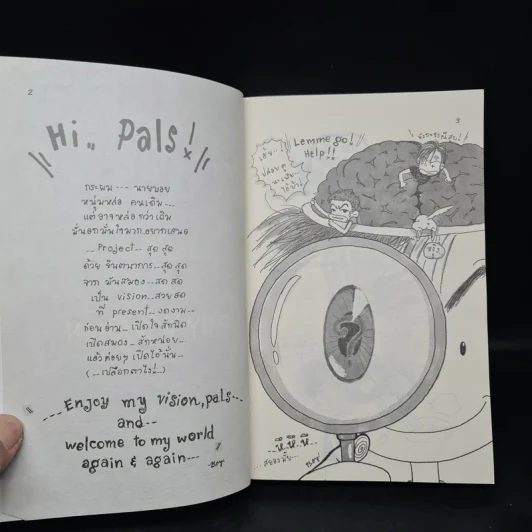 2
Hi.. Pals!
กระผม --- นายบอย
หนุ่มหล่อ คนเดิม...
แต่อาจหล่อกว่าเดิม
มั่นอกมั่นใจมากอยากเสนอ
... Project... สุด สุด
ด้วย จินตนาการ... สุด สุด
จาก มันสมอง... สด สด
เป็น vision...สวย สด
ที่ present...งดงาม...
ก่อนอ่าน...เปิดใจสักนิด
เปิดสมอง...สักหน่อย...
แล้วค่อยๆ เปิดไอ้นั่น...
(...เปลือกตาไง!...)
Enjoy my vision, pals...
and...
welcome to my world
again & again...
3
Lemme go!
Help!!
หึ.หึ.หึ...